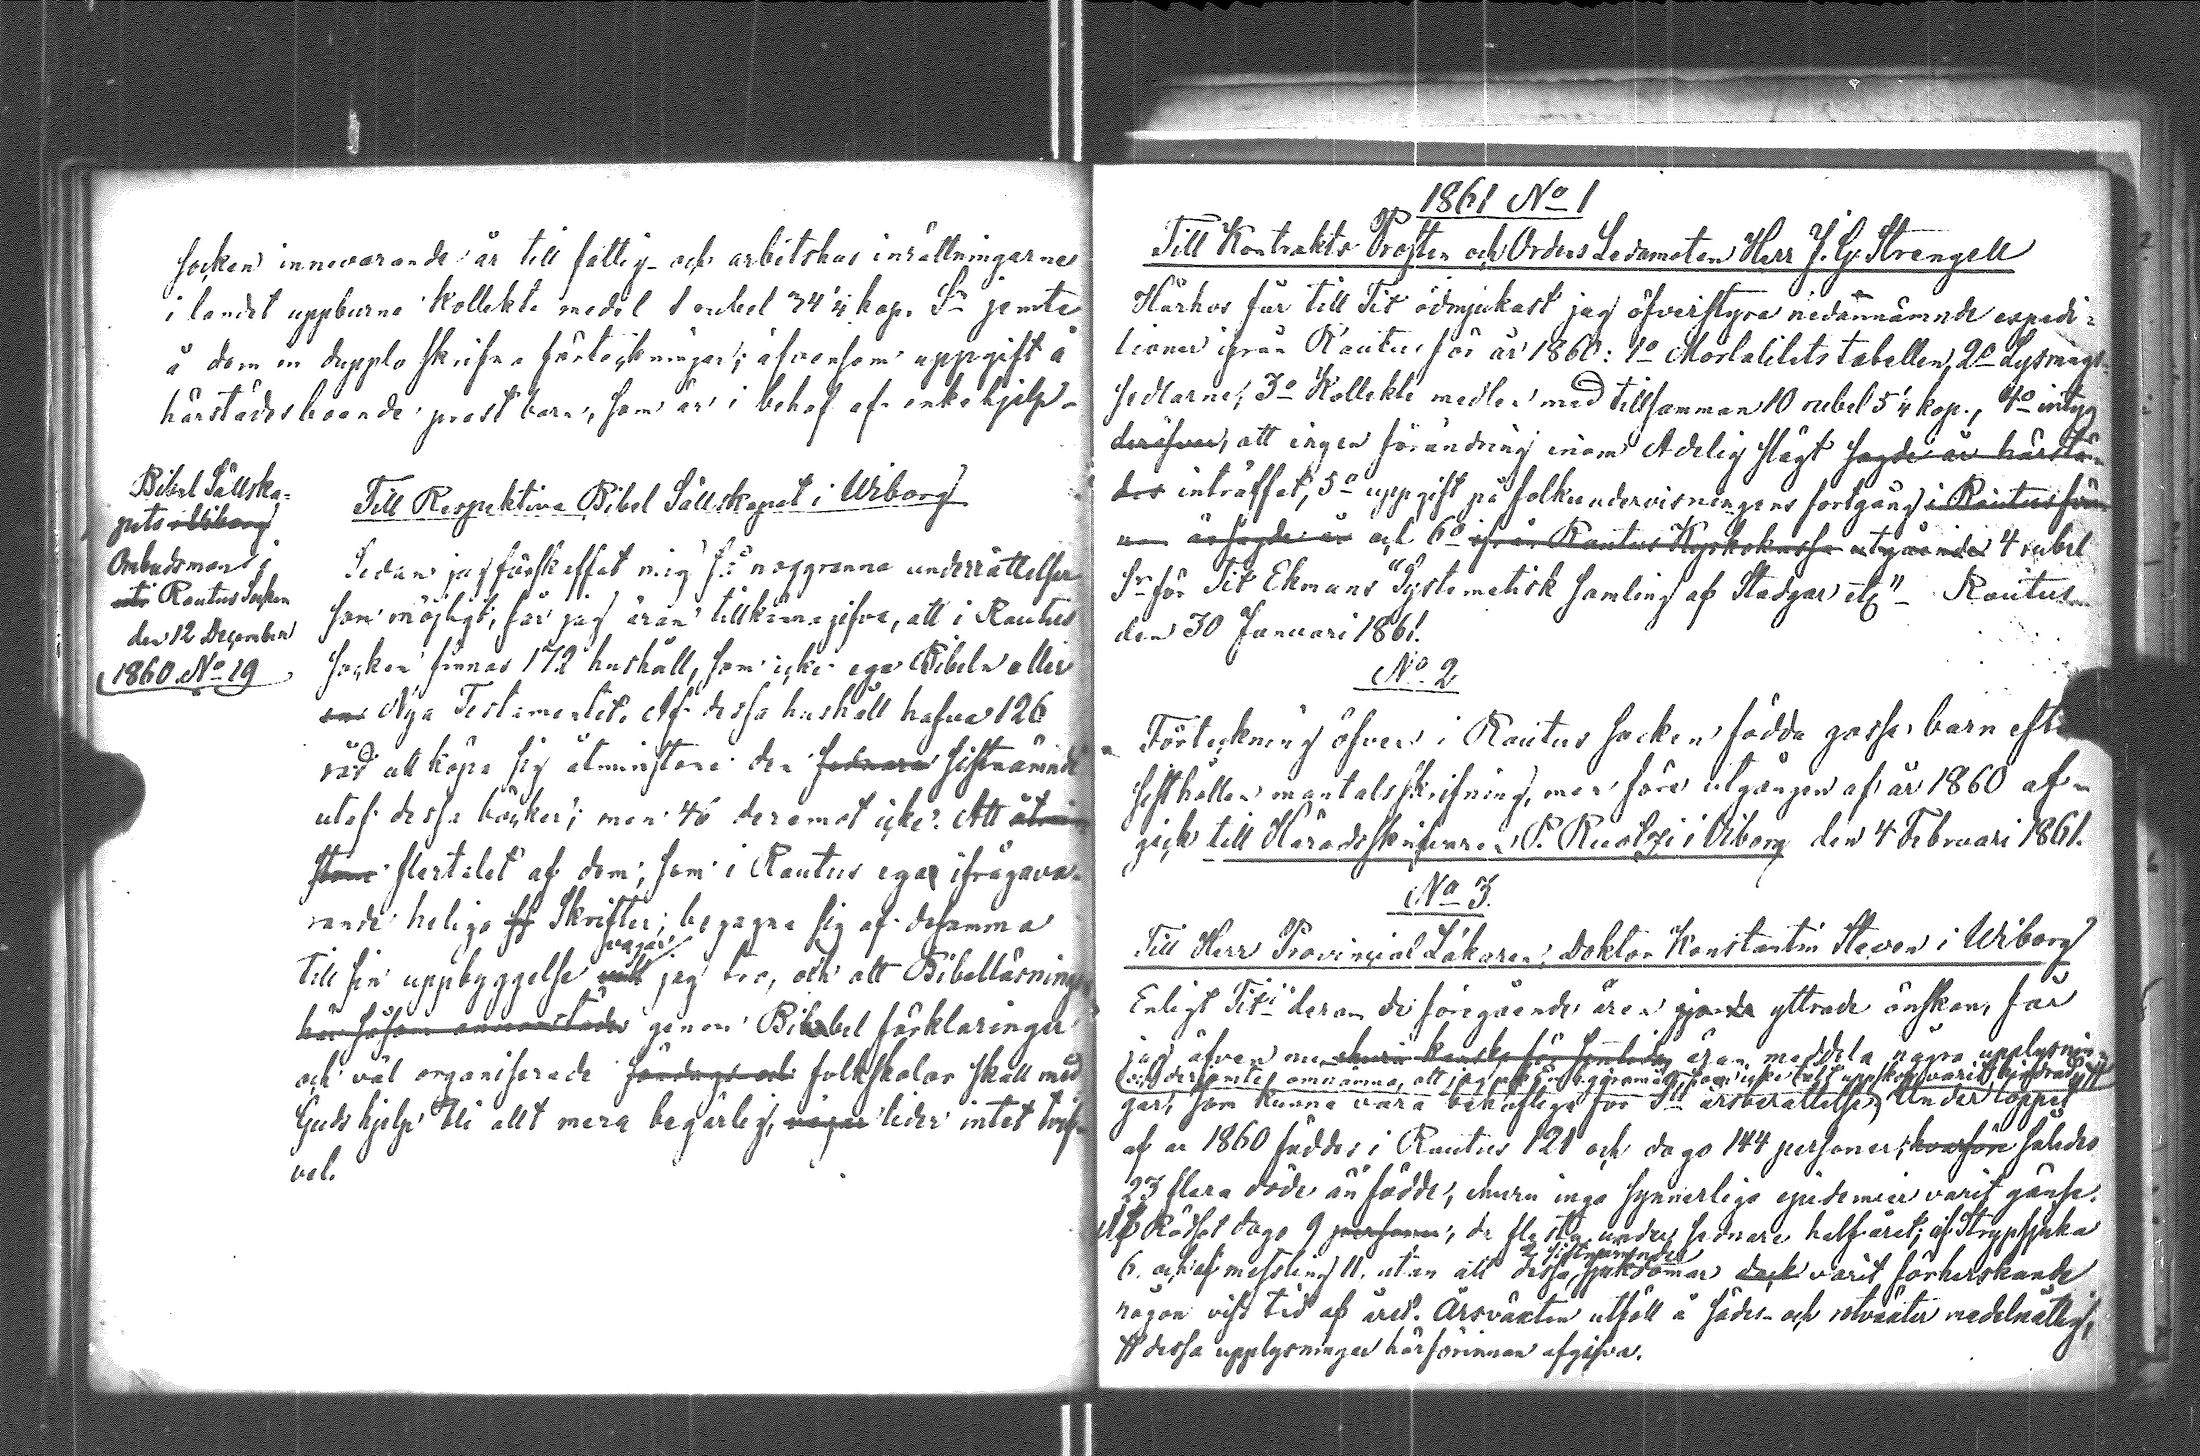 socken innevarande år till fattig- och arbetshus inrättningarne
i landet uppburne Kollekte medel 1 rubel 34 1/4 kop. Sr jemte
å dem in dupplo skrifna förteckningar; äfvensom uppgift å
härstädes boende prost barn, som är i behof af enkehjelp.
Bibel Sällska-
pets i Wiborg
Ombudsmans i
uti Rautus Socken
den 12 December
1860 No 19
Till Respektive Bibel Sällskapet i Wiborg
Sedan jag förskaffat mig så noggranna underrättelser
som möjligt, får jag äran tillkännagifva, att i Rautus
socken finnas 172 hushåll, som icke ega Bibeln eller
ens Nya Testamentet. Af dessa hushåll hafva 126
råd att köpa sig åtminstone den sednare sistnämnde
utaf dessa böcker; men 46 deremot icke. Att åtmin-
stone flertalet af dem, som i Rautus egas ifrågava-
rande heliga Skrifter, begagna sig af desamma
vågar
till sin uppbyggelse vill jag tro, och att Bibelläsning
här såsom annorstädes genom Bibel förklaringar
och väl organiserade söndags och folkskolor skall med
Guds hjelp bli allt mera begärlig, vågar lider intet tvif-
vel.
1861 No 1
Till Kontrakts Prosten och Ordens Ledamoten Herr J. G. Strengell
Härhos får till Tit ödmjukast jag öfverstyra nedannämnde expedi-
tioner ifrån Rautus för år 1860: 1o Mortalitets tabellen, 2o Lysnings-
sedlarne, 3o Kollekte medler med tillsamman 10 rubel 5 1/4 kop., 4o intyg
deröfver, att ingen förändring inom Adelig slägt sagde år härstä-
des inträffat, 5o uppgift på folkundervisningens fortgång i Rautus för-
 sagde år och 6o ifrån Rautus Kyrkokassa utgående 4 rubel
Sr för Tit Ekmans "Systematisk samling af Stadgar etc" - Rautus
den 30 Januari 1861.
No 2
Förteckning öfver i Rautus socken födda gosse barn efter
sisthållen mantalsskrifning, men före utgången af år 1860 af-
gick till Häradsskrifvaren P. Ruolzi i Viborg den 4 Februari 1861.
No 3.
Till Herr Provincial Läkaren, Doktor Konstantin Steven i Wiborg
Enligt Tit: deran de föregående åren yttrade önskan, får
jag äfven nu ehuru kanske för sent äran meddela några upplysnin-
och derjemte omnämna, att jag
gar, som kunna vara behöflige för årsberättelse. Under loppet
af år 1860 föddes i Rautus 121 och dogo 144 personer, hvarföre således
23 flera döde än födde, ehuru inga synnerliga epidemier varit gängse.
Af Rödsot dogo 9 personer, de flesta under sednare halfåret; af Strypsjuka
2 sistnämnde
6. och af messling 11. utan att dessa sjukdomar dock varit förherskande
någon viss tid af året. Årsväxten utföll å sädes- och rotväxter medelmåttig,
dessa upplysningar härförinnan afgifva.